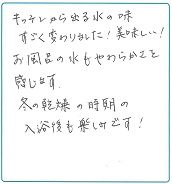 キッチンから出る水の味
すごく変わりました！美味しい！
お風呂の水もやわらかさを
感じます。
冬の乾燥の時期の
入浴後も楽しみです！